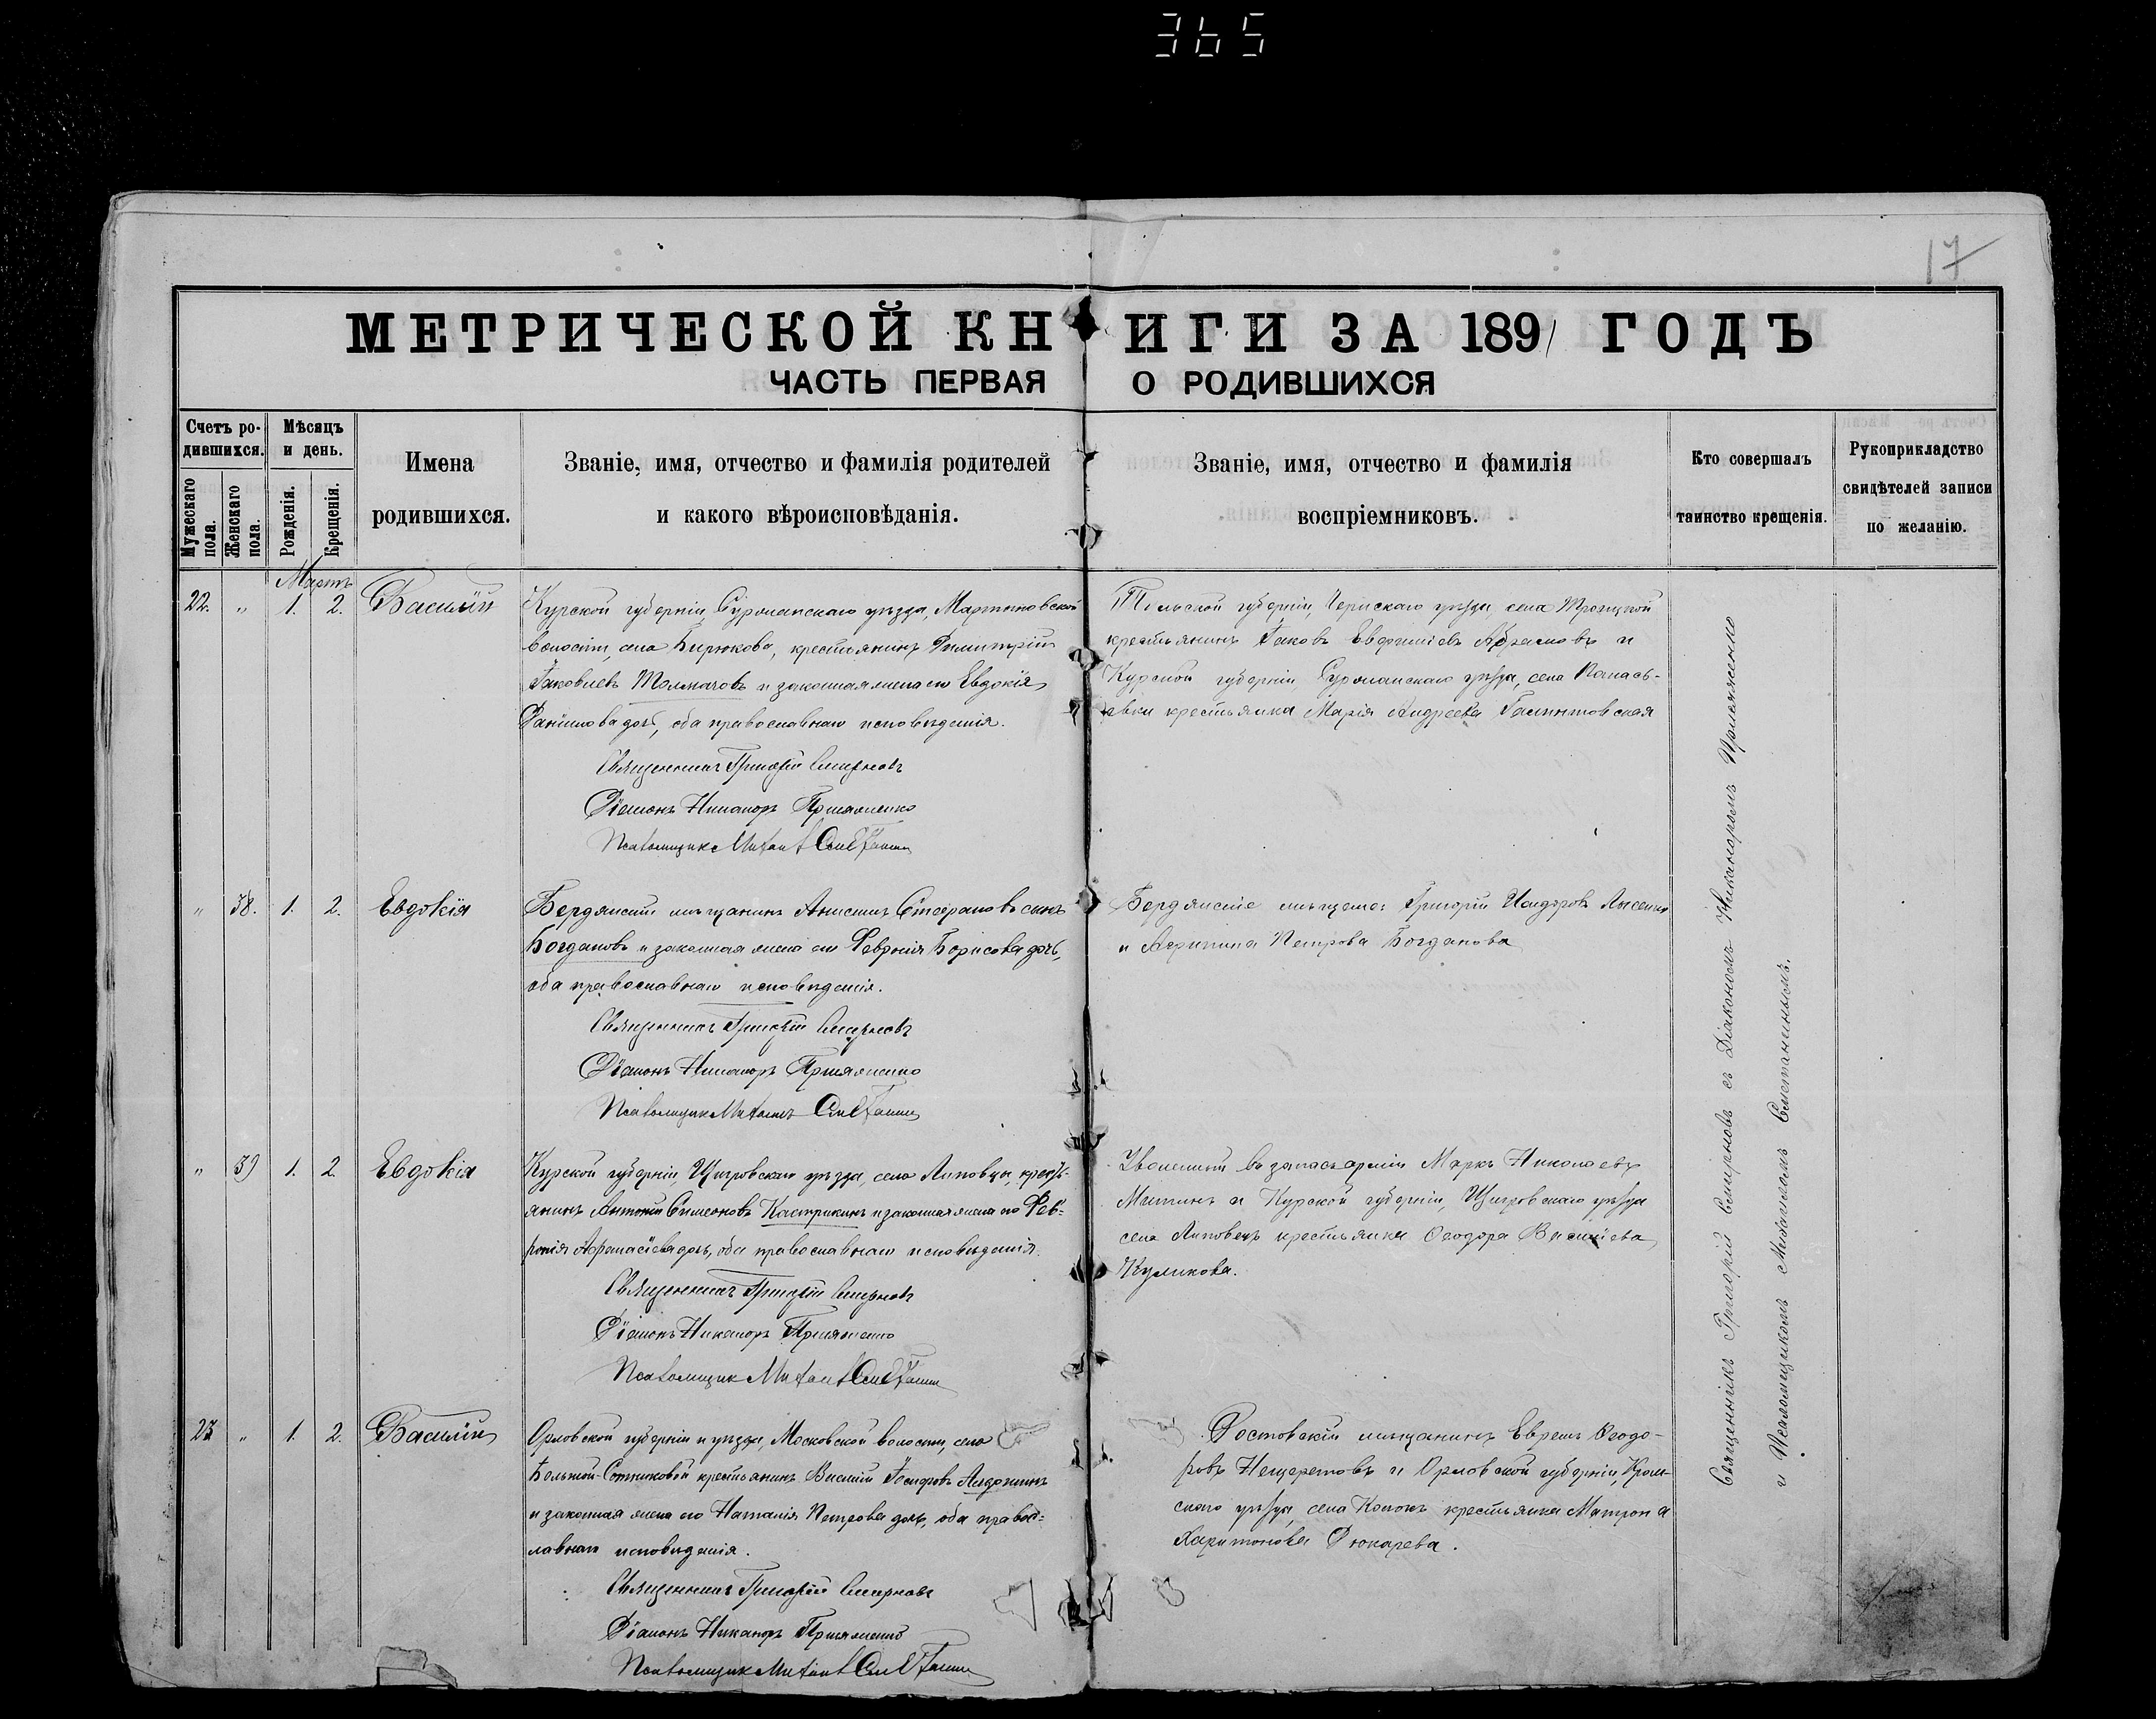 365
17
МЕТРИЧЕСКОЙ КНИГИ ЗА 1891 ГОДЪ
ЧАСТЬ ПЕРВАЯ О РОДИВШИХСЯ
Счетъ родившихся.
Мужескаго пола.
Женскаго пола.
Мѣсяцъ и день.
Рожденія.
Крещенія.
Имена
родившихся.
Званіе, имя, отчество и фамилія родителей
и какого вѣроисповѣданія.
Званіе, имя, отчество и фамилія
воспріемниковъ.
Кто совершалъ
таинство крещенія.
Рукоприкладство
свидѣтелей записи
по желанію.
Мартъ
22. " 1. 2. Василій
Курской губерніи, Суджанскаго уѣзда, Мартыновской
волости, села Бирюкова, крестьянинъ Димитрій
Іаковлевъ Толмачовъ и законная жена его Евдокія
Даніилова дочь, оба православнаго исповѣданія.
Священникъ Григорій Смирновъ
Діаконъ Никаноръ Прилженко
Псаломщикъ Михаилъ Сметанинъ
Тульской губерніи, Чернскаго уѣзда, села Троицкой
крестьянинъ Іаковъ Евфиміевъ Абрамовъ и
Курской губерніи, Суджанскаго уѣзда, села Панась-
евки крестьянка Марія Андреева
" 38. 1. 2. Евдокія
Бердянскій мѣщанинъ Анисимъ Стефановъ сынъ
Богдановъ и законная жена его Февронія Борисова дочь,
оба православнаго исповѣданія.
Священникъ Григорій Смирновъ
Діаконъ Никаноръ
Псаломщикъ Михаилъ Сметанинъ
Бердянскіе мѣщане: Григорій Исидоровъ Лысенко
и Агрипина Петрова Богданова
" 39 1. 2 Евдокія
Курской губерніи, Щигровскаго уѣзда, села Липовца, кресть-
янинъ Антоній Симеоновъ Кастрикинъ и законная жена его Фев-
ронія Афанасіева дочь, оба православнаго исповѣданія.
Священникъ Григорій Смирновъ
Діаконъ Никаноръ
Псаломщикъ Михаилъ Сметанинъ
Уволенный въ запасъ арміи Маркъ Николаевъ
и Курской губерніи, Щигровскаго уѣзда
села Липовецъ крестьянка Ѳеодора Василіева
Куликова.
23 " 1. 2. Василій
Орловской губерніи и уѣзда, Московской волости, села
Большой-Сотниковой крестьянинъ Василій
и законная жена его Наталія Петрова дочь, оба правос-
лавнаго исповѣданія.
Священникъ Григорій Смирновъ
Діаконъ Никаноръ
Псаломщикъ Михаилъ Сметанинъ
Ростовскій мѣщанинъ Ефремъ Ѳеодо-
ровъ Нещеретовъ и Орловской губерніи, Кром-
скаго уѣзда, села крестьянка Матрона
Харитонова Дюкарева.
Священникъ Григорій Смирновъ съ Діакономъ Никаноромъ
и Псаломщикомъ Михаиломъ Сметанинымъ.